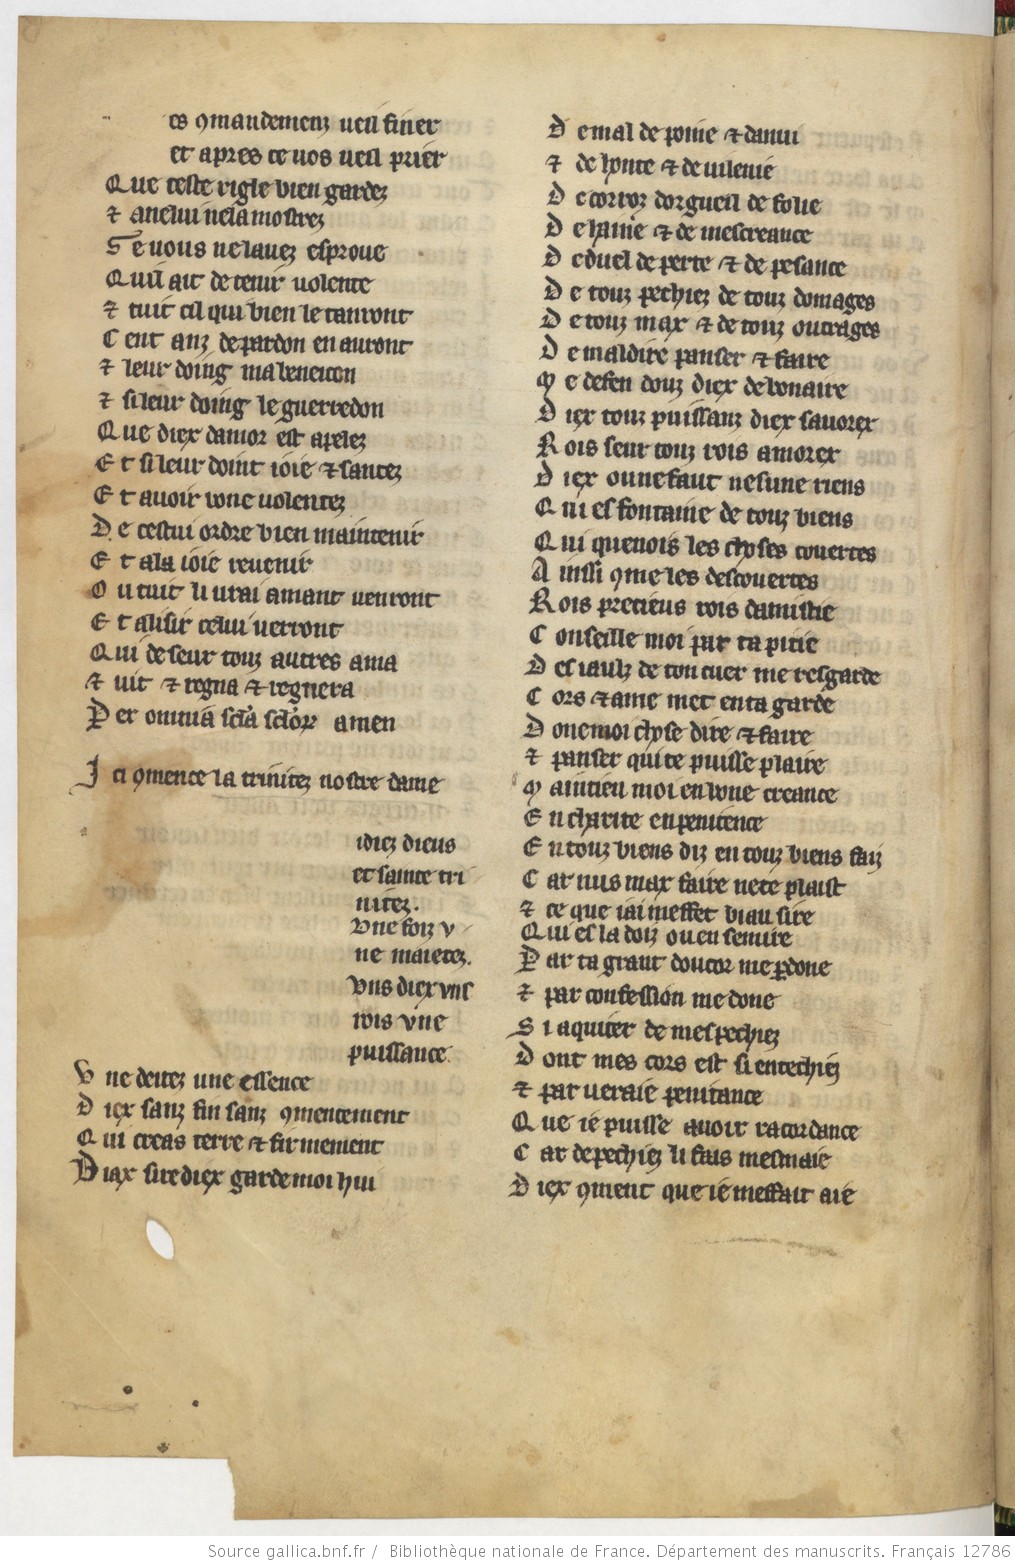 es ꝯmandemenz ueil finer
et apres ce uos ueil prier
Que ceste rigle bien gardez
⁊ anelui nela mostrez
Se uous ne lauez esproue
Quil ait de tenir uolente
⁊ tuit cil qui bien le tanront
Cent anz de pardon en auront
⁊ leur doing ma beneicon
⁊ si leur doing le guerredon
Que diex damor est apelez
Et si leur doint ioie ⁊ santez
Et auoir bone uolentez
De cestui ordre bien maintenir
Et a la ioie reuenir
Ou tuit li urai amant uenront
Et a lisir celui uerront
Qui deseur touz autres ama
⁊ uit ⁊ regna ⁊ regnera
Per omnia scła scłorꝝ amen
Ici ꝯmence la trinitez nostre dame
idiez dieus
et sainte tri
nitez.
Vne foiz v
ne maietez.
Vns diex vns
rois vne
puissance.
Vne deitez une essence
Diex sanz fin sanz ꝯmencement
Qui creas terre ⁊ firmement
Diax sire diex garde moi hui
De mal de poine ⁊ danui
⁊ de honte ⁊ de uilenie
De corroz dorgueil de folie
De haine ⁊ de mescreance
De duel de perte ⁊ de pesance
De touz pechiez de touz domages
De touz max ⁊ de touz outrages
De mal dire panser ⁊ faire
Me defen douz diex debonaire
Diex touz puissanz diex sauorex
Rois seur touz rois amorex
Diex ou ne faut nesune riens
Qui es fontaine de touz biens
Qui quenois les choses couertes
Ainssi ꝯme les descouertes
Rois precieus rois damistie
Conseille moi par ta pitie
Des iaulz de ton cuer me resgarde
Cors ⁊ ame met en ta garde
Done moi chose dire ⁊ faire
⁊ panser qui te puisse plaire
Maintien moi en bone creance
En charite en penitence
En touz biens diz en touz biens faiz
Car nus max faire ne te plaist
⁊ ce que iai meffet biau sire
Qui es la doiz ou en semire
Par ta grant doucor me ꝑdone
⁊ par confession me done
Si aquiter de mes pechiez
Dont mes cors est si entechiez
⁊ par ueraie penitance
Que ie puisse auoir racordance
Car de pechiez li fais mesmaie
Diex ꝯment que ie meffait aie
Source gallica.bnf.fr / Bibliothèque nationale de France. Département des manuscrits. Français 12786